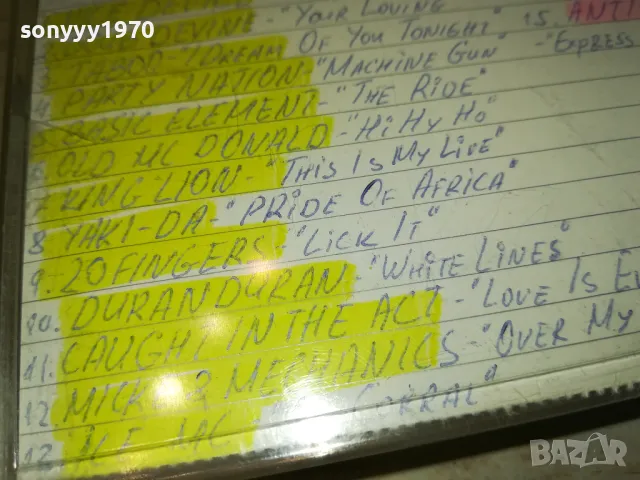 sonyyy1970
DEVINE - "YOUR LOVING
TABOO - "DREAM OF YOU TONIGHT" 15. ANTI
4 PARTY NATION - "MACHINE GUN" - "EXPRESS
5 BASIC ELEMENT - "THE RIDE"
6 OLD MC DONALD - "HI HY HO"
7 KING LION - "THIS IS MY LIVE"
8 YAKI-DA - "PRIDE OF AFRICA"
9. 20 FINGERS - "LICK IT"
10. DURAN DURAN - "WHITE LINES"
11. CAUGHT IN THE ACT - "LOVE IS E
12. MICK & MECHANICS - "OVER MY
12 MC CORRAL"
BAZAR